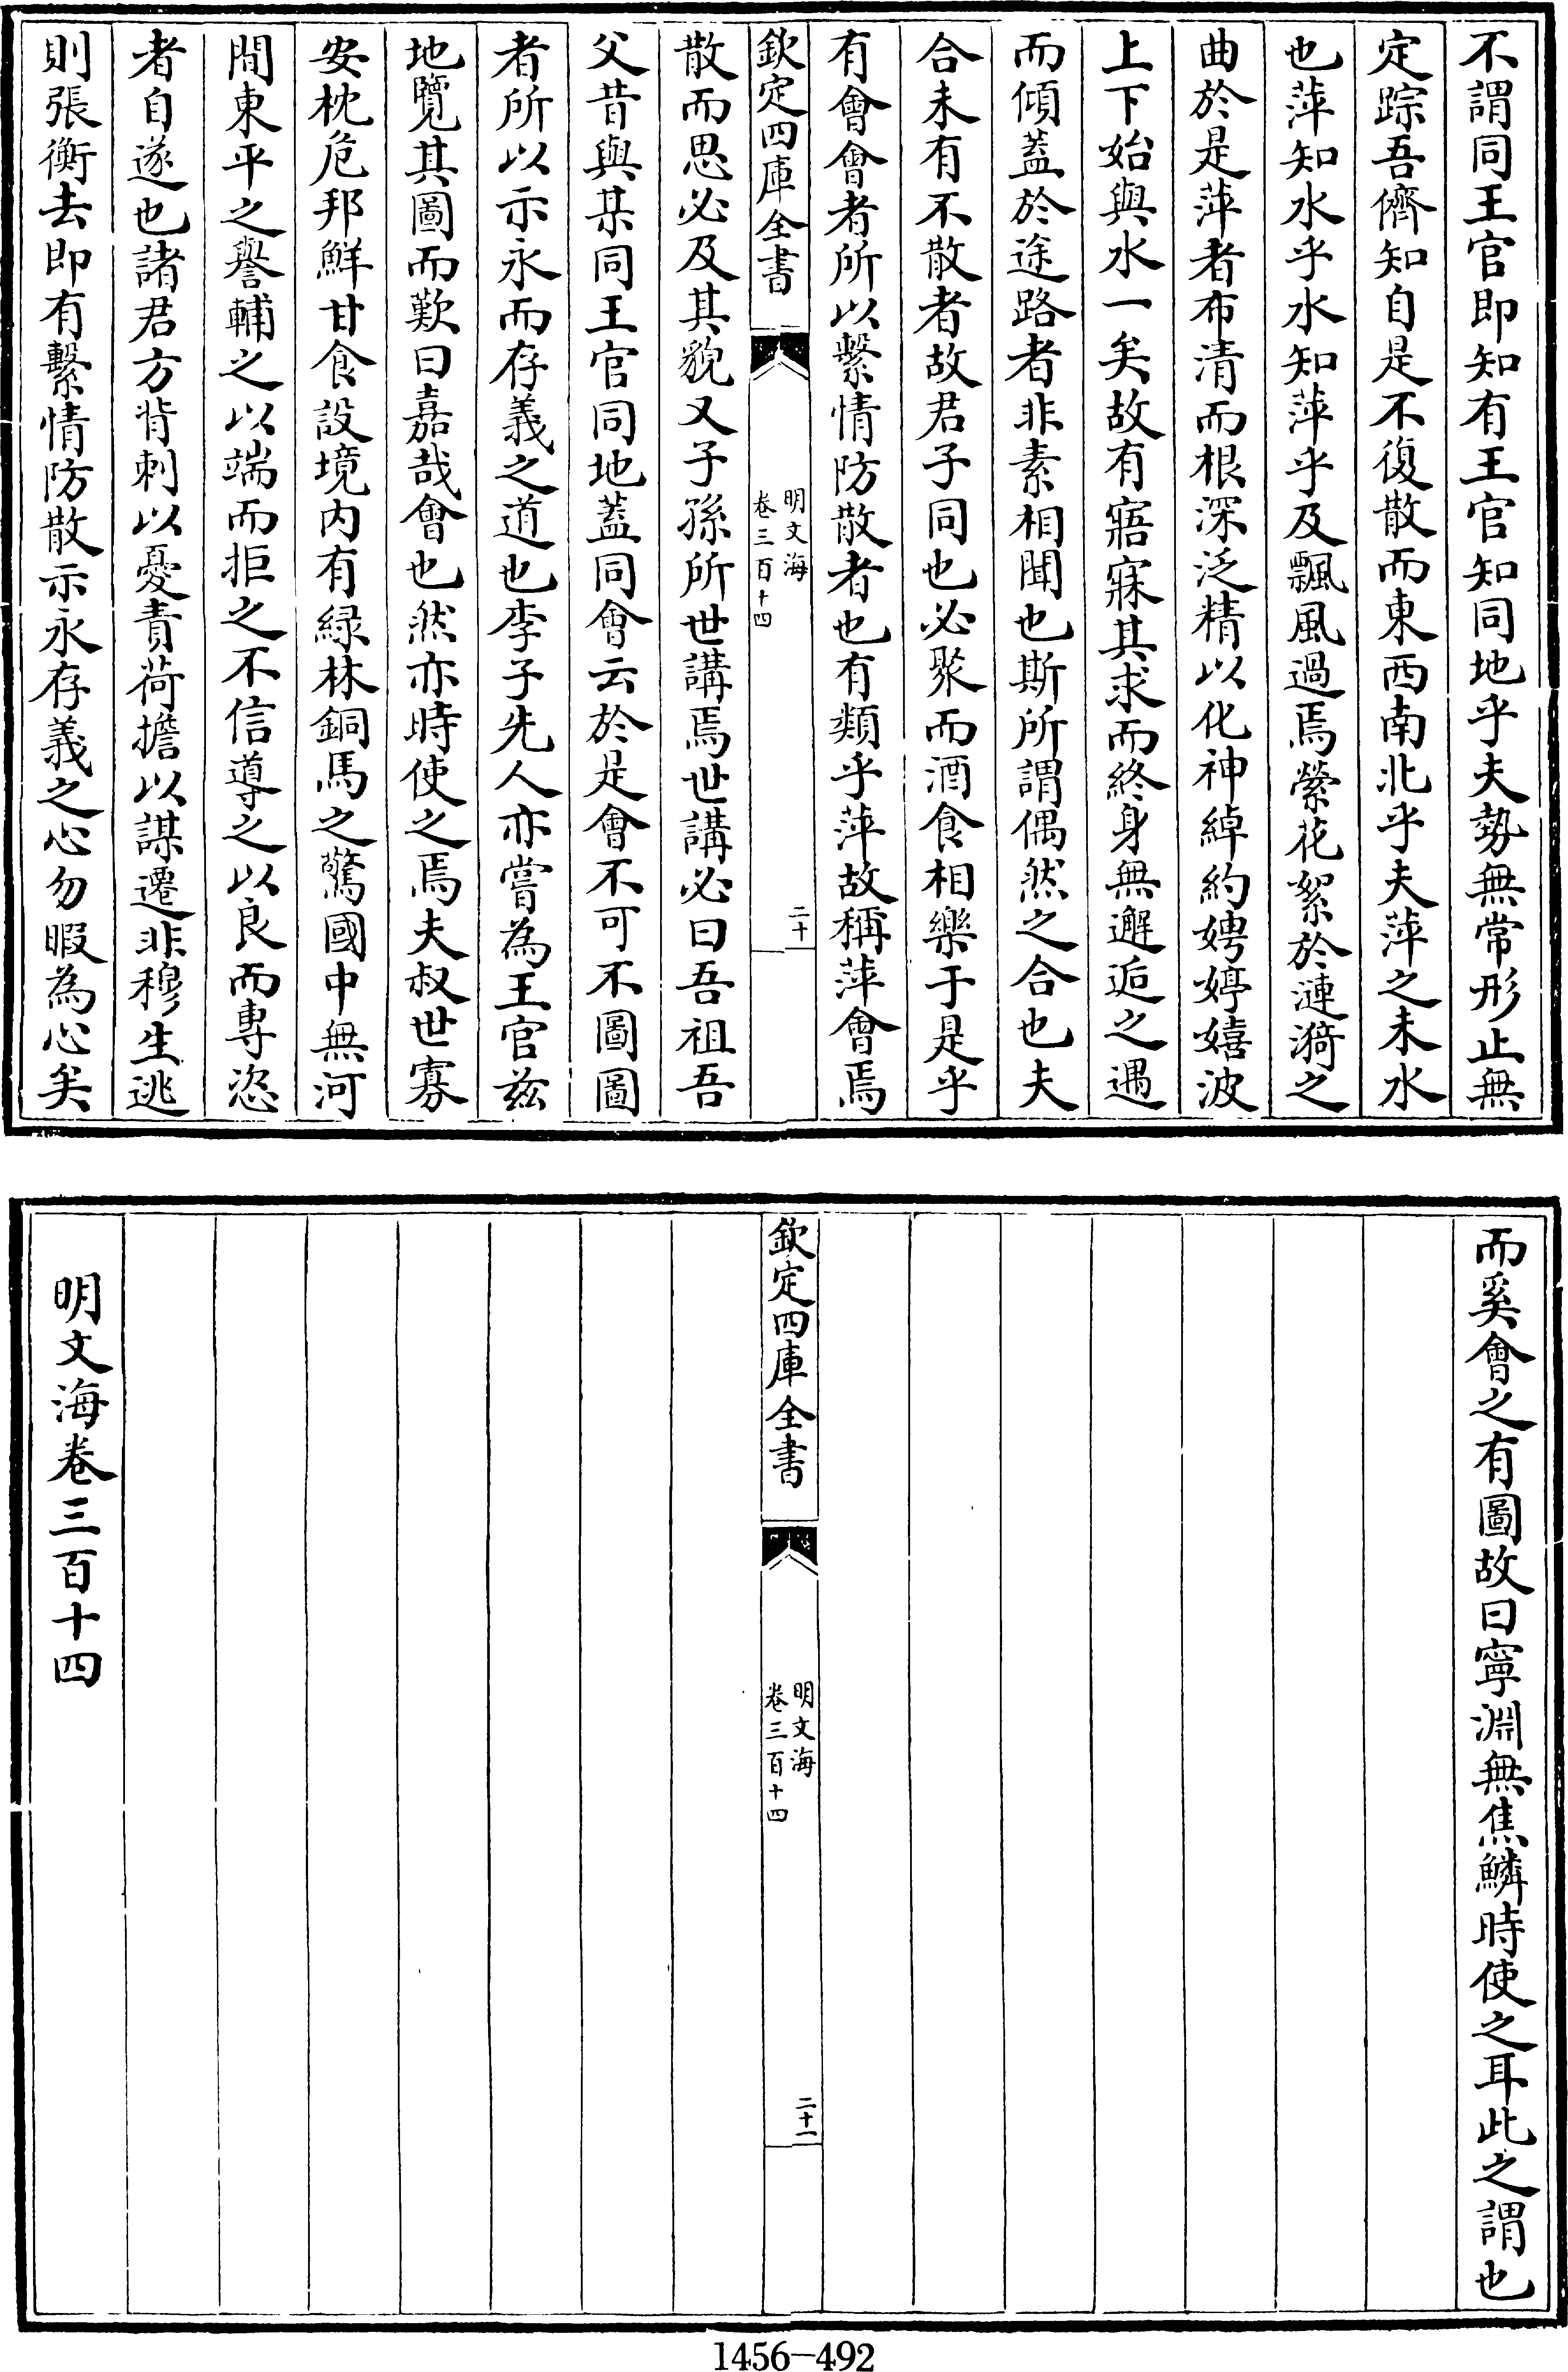 不謂同王官即知有王官知同地乎夫勢無常形止無
定踪吾儕知自是不復散而東西南北乎夫萍之未水
也萍知水乎水知萍乎及飄風過焉縈花絮於漣漪之
曲於是萍者布清而根深泛精以化神綽約娉婷嬉波
上下始與水一矣故有寤寐其求而終身無邂逅之遇
而傾蓋於途路者非素相聞也斯所謂偶然之合也夫
合未有不散者故君子同也必聚而酒食相樂于是乎
有會會者所以繫情防散者也有類乎萍故稱萍會焉
欽定四庫全書
明文海
卷三百十四
二十
散而思必及其貌又子孫所世講焉世講必曰吾祖吾
父昔與某同王官同地蓋同會云於是會不可不圖圖
者所以示永而存義之道也李子先人亦嘗為王官茲
地覽其圖而歎曰嘉哉會也然亦時使之焉夫叔世寡
安枕危邦鮮甘食設境內有綠林銅馬之驚國中無河
間東平之譽輔之以端而拒之不信導之以良而專恣
者自遂也諸君方背刺以憂責荷擔以謀遷非穆生逃
則張衡去即有繫情防散示永存義之心勿暇為心矣
而奚會之有圖故曰寧淵無焦鱗時使之耳此之謂也
欽定四庫全書
明文海
卷三百十四
二十一
明文海卷三百十四
1456-492